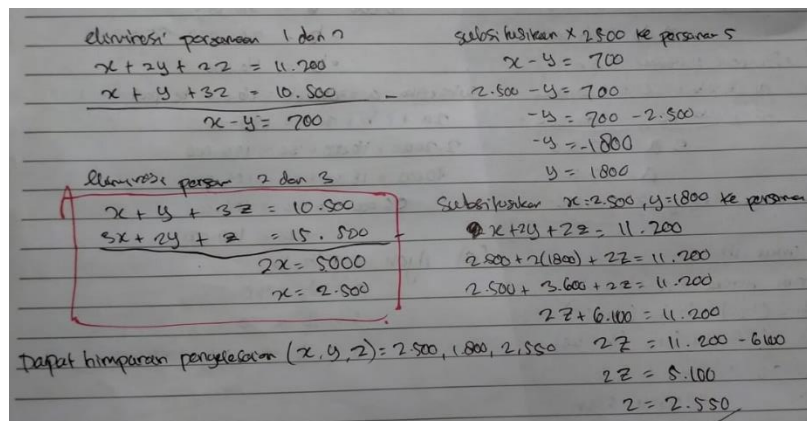 eliminasi persamaan 1 dan 2
x + 2y + 2z = 11.200
x + y + 3z = 10.500 -
x - y = 700
eliminasi persam 2 dan 3
x + y + 3z = 10.500
3x + 2y + z = 15.500 -
2x = 5000
x = 2.500
Dapat himpunan penyelesaian (x, y, z) = 2.500, 1.800, 2.550
subsitusikan x 2500 ke persaman 5
x - y = 700
2.500 - y = 700
-y = 700 - 2.500
-y = -1800
y = 1800
Subsitusikan x = 2.500, y = 1800 ke persama
x + 2y + 2z = 11.200
2.500 + 2(1800) + 2z = 11.200
2.500 + 3.600 + 2z = 11.200
2z + 6.100 = 11.200
2z = 11.200 - 6100
2z = 5.100
z = 2.550